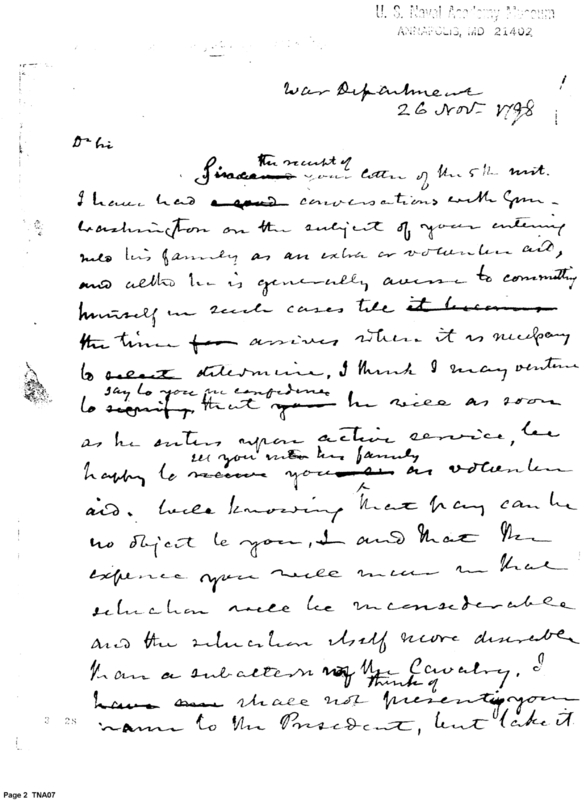 U. S. Naval Academy Museum
ANNAPOLIS, MD 21402
War Department
26 Nov. 1798
Dr Sir
the receipt of
Since your letter of the 5th inst.
I have had a good conversations with Genl
Washington on the subject of your entering
into his family as an extra or volunteer aid,
and altho he is generally averse to committing
himself in such cases till it becomes
the time for arrives when it is necessary
to select determine, I think I may venture
say to you in confidence
to signify, that your he will as soon
as he enters upon active service, be
see you into his family
happy to receive you as volunteer
aid. Well knowing that pay can be
no object to you, I and that the
expence you will incur in that
situation will be inconsiderable
and the situation itself more desirable
than a subaltern of the Cavalry. I
think of
have shall not presenting your
name to the President, but take it
2 28
Page 2 TNA07